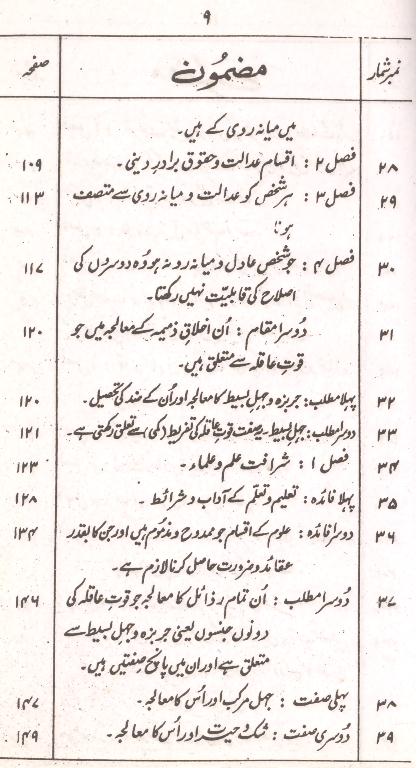 ۹
نمبر شمار مضمون صفحہ
میں میانہ روی کے ہیں۔
۲۸ فصل ۲ : اقسام عدالت و حقوق برادر دینی۔ ۱۰۹
۲۹ فصل ۳ : ہر شخص کو عدالت و میانہ روی سے متصف ۱۱۳
ہونا
۳۰ فصل ۴ : جو شخص عادل و میانہ رو نہ ہو وُہ دوسروں کی ۱۱۷
اصلاح کی قابلیّت نہیں رکھتا۔
۳۱ دُوسرا مقام : اُن اخلاقِ ذمیمہ کے معالجہ میں جو ۱۲۰
قوتِ عاقلہ سے متعلق ہیں۔
۳۲ پہلا مطلب : جربزہ و جہلِ بسیط کا معالجہ اور اُن کے ضد کی تحصیل۔ ۱۲۰
۳۳ دوسرا مطلب : جہلِ بسیط۔ یہ صفت قوتِ عاقلہ کی تفریط (کمی) سے تعلق رکھتی ہے۔ ۱۲۱
۳۴ فصل ۱ : شرافت علم و علماء۔ ۱۲۳
۳۵ پہلا فائدہ : تعلیم و تعلّم کے آداب و شرائط۔ ۱۲۸
۳۶ دوسرا فائدہ : علوم کے اقسام جو ممدوح و مذموم ہیں اور جن کا بقدر ۱۳۴
عقائد و ضرورت حاصل کرنا لازم ہے۔
۳۷ دُوسرا مطلب : اُن تمام رذائل کا معالجہ جو قوتِ عاقلہ کی ۱۴۶
دونوں جنسوں یعنی جربزہ و جہلِ بسیط سے
متعلق ہے اور ان میں پانچ صفتیں ہیں۔
۳۸ پہلی صفت : جہل مرکب اور اُس کا معالجہ۔ ۱۴۷
۳۹ دُوسری صفت : شک و حیرت اور اُس کا معالجہ۔ ۱۴۹